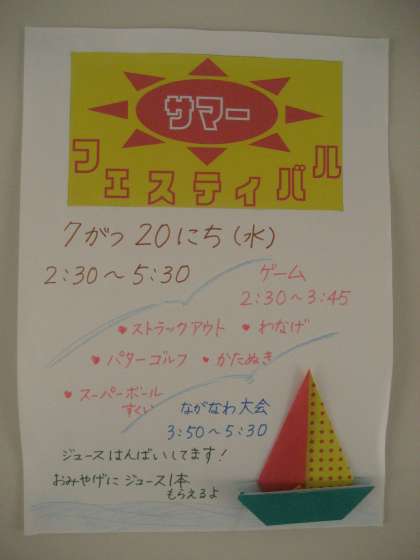 サマー
フェスティバル
7がつ20にち(水)
2:30～5:30
ゲーム
2:30～3:45
♥ストラックアウト ♥わなげ
♥パターゴルフ ♥かたぬき
♥スーパーボール
すくい
ながなわ大会
3:50～5:30
ジュースはんばいしてます!
おみやげにジュース1本
もらえるよ